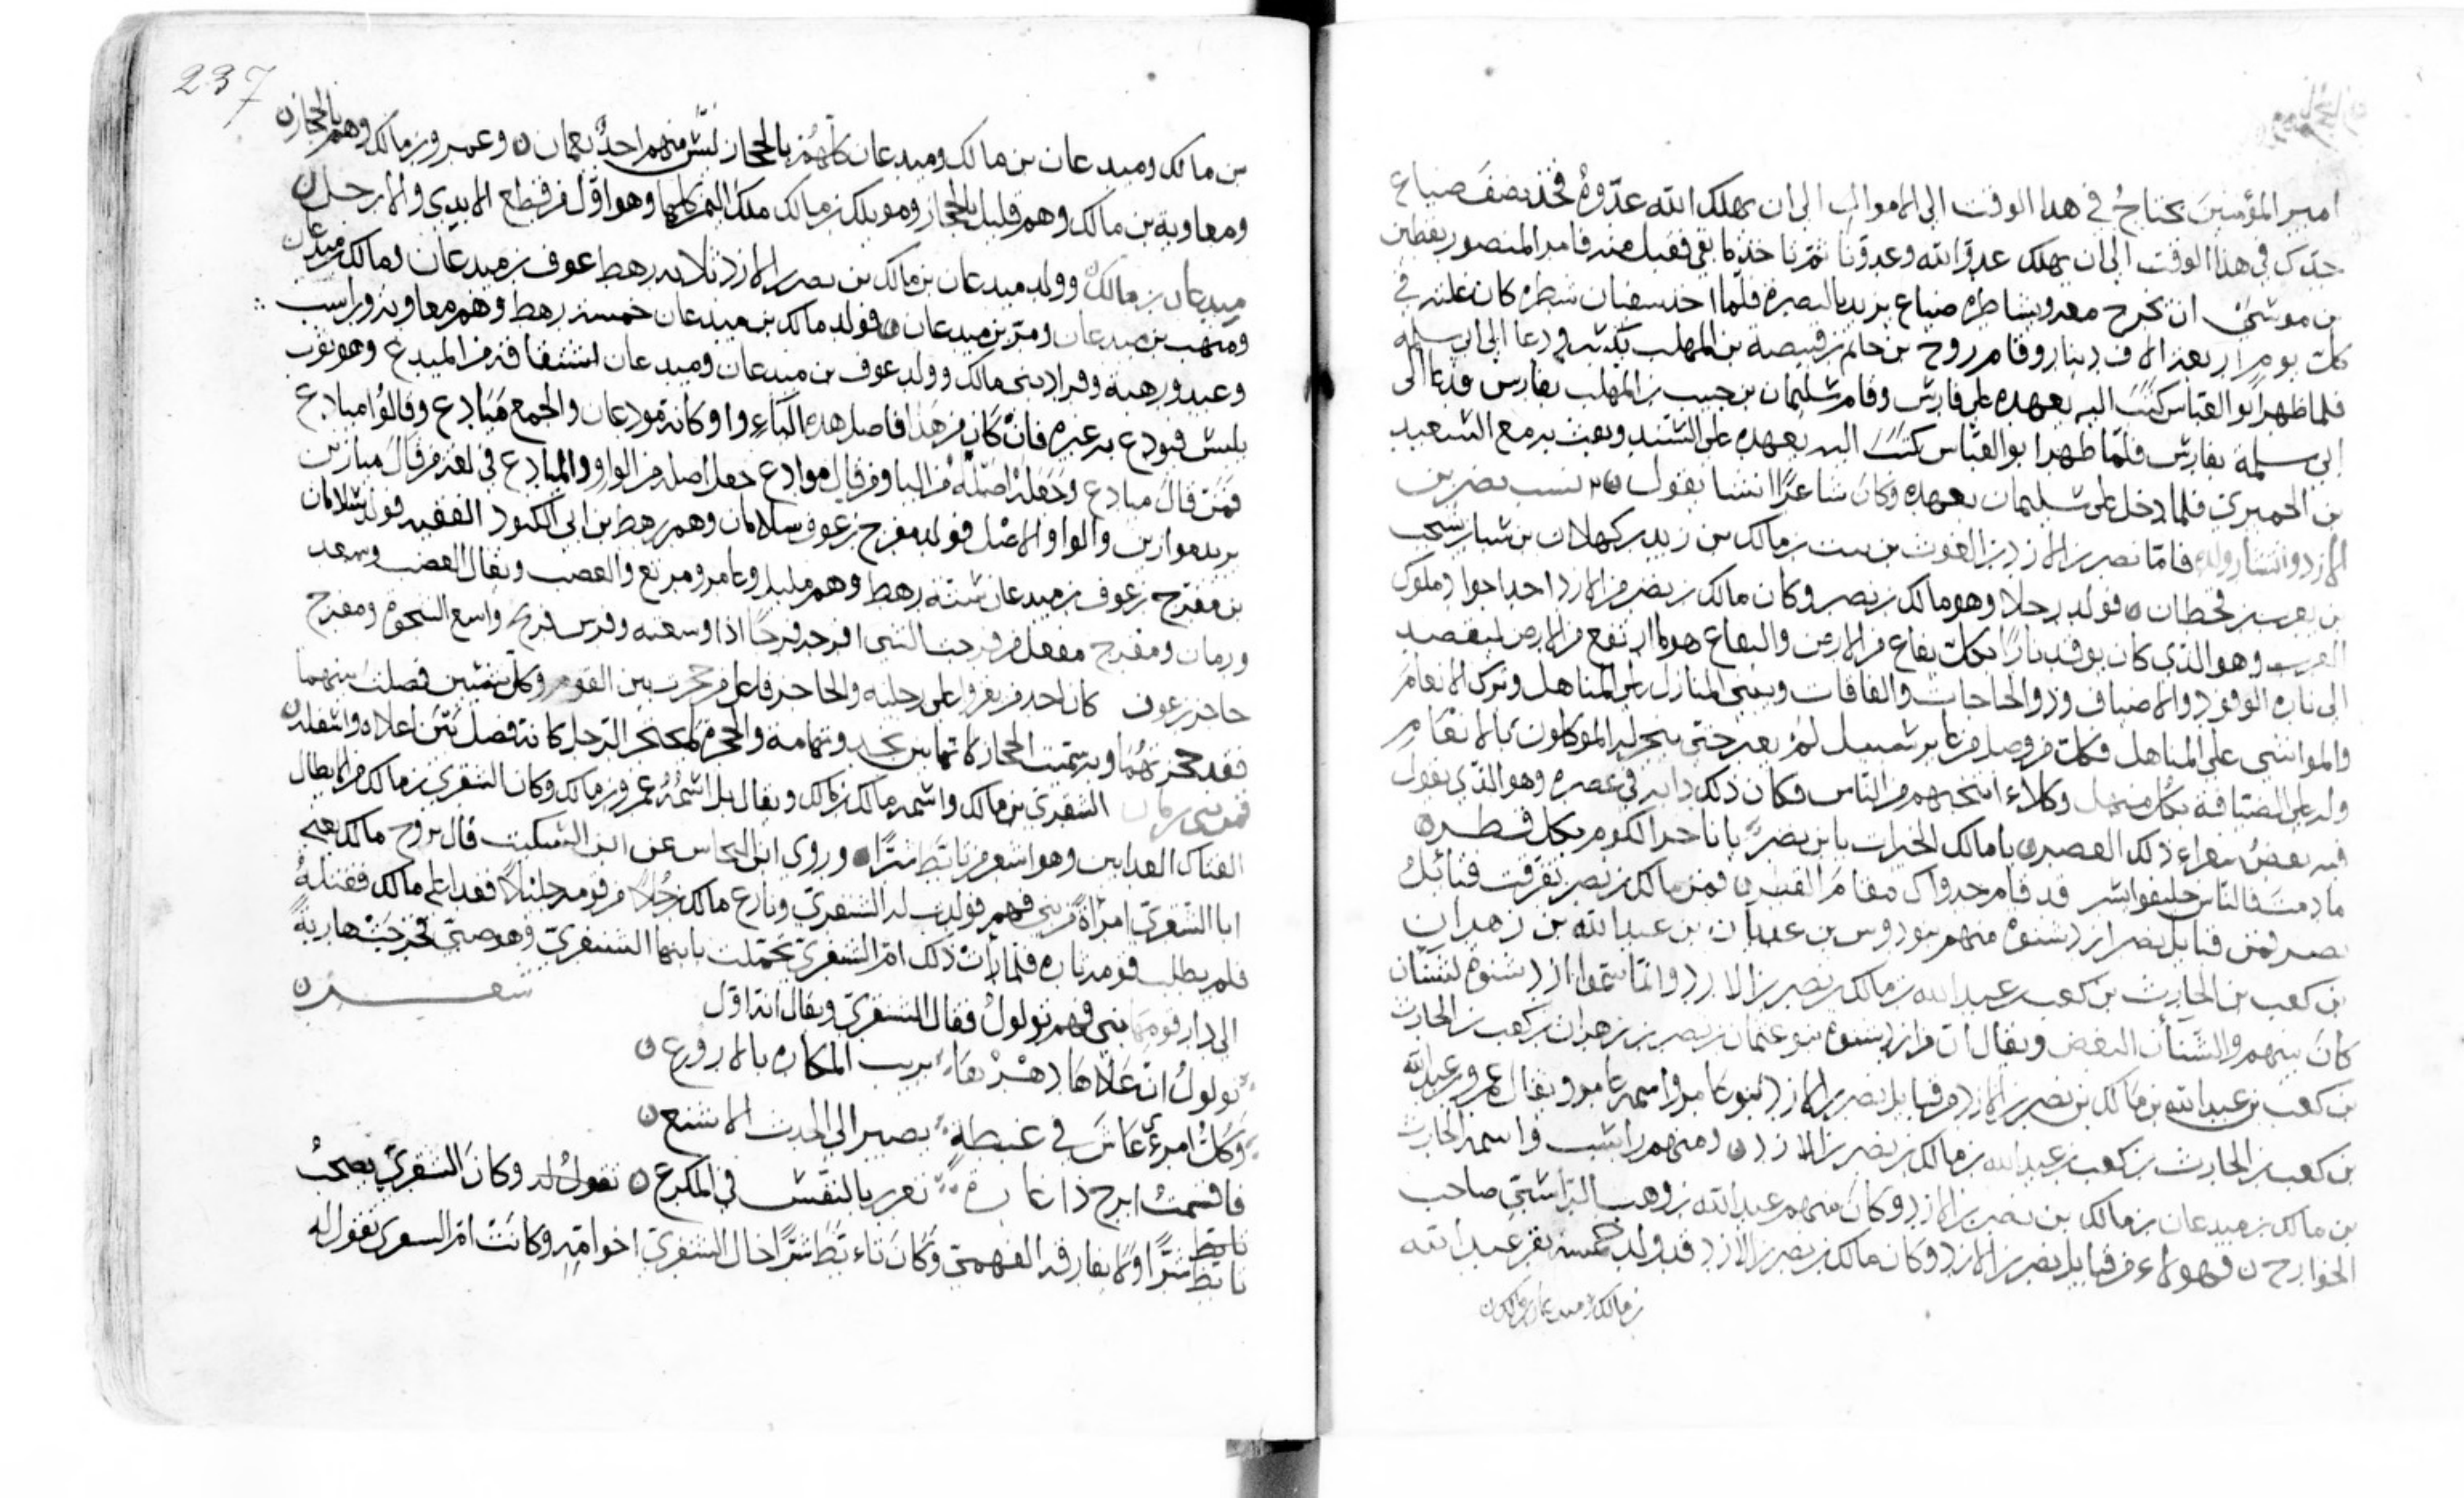 امير المؤمنين يحتاج في هذا الوقت الى الاموال الى ان يهلك الله عدوه فخذ نصف ضياع
جدك في هذا الوقت الى ان يهلك عدو الله وعدونا ثم تاخذ ما بقي فقبل منه فامر المنصور يقطين
بن موسى ان يخرج معه ويشاطره ضياع يزيد بالبصره فلما اخذ سفيان شطره كان غلته في
كل يوم اربعة الاف دينار وقام روح بن حاتم بن قبيصة بن المهلب ودعا الى ابي سلمه
فلما ظهر ابو العباس كتب اليه بعهده على فارس وقام سليمان بن حبيب بن المهلب بفارس فدعا الى
ابي سلمة بفارس فلما ظهر ابو العباس كتب اليه بعهده على السند وبعث به مع السعيد
بن الحميري فلما دخل على سليمان بعهده وكان شاعرا انشا يقول ن نسب نصر بن
الازد وانتشار ولده فاما نصر بن الازد بن الغوث بن نبت بن مالك بن زيد بن كهلان بن سبا بن يشجب
بن يعرب بن قحطان ن فولد رجلا وهو مالك بن نصر وكان مالك بن نصر من الازد احد اجواد ملوك
العرب وهو الذي كان يوقد نارا بكل يفاع من الارض واليفاع هو ما ارتفع من الارض ليقصد
الى ناره الوفود والاضياف وذوا الحاجات والفاقات وبنى المنازل على المناهل وترك الانعام
والمواشي على المناهل فكل من وصل من عابر سبيل لم يعبر حتى ينحر له الموكلون بالانعام
وله على الضيافة بكل منهل وكلاء انتخبهم من الناس فكان ذلك دابه في عصره وهو الذي يقول
فيه بعض شعراء ذلك العصر ن يا مالك الخيرات يا بن نصر يا ناحر الكوم بكل قطر ن
ما دمت فالناس حليفوا يسر قد قام جدواك مقام القطر ن فمن مالك بن نصر تفرقت قبائل
نصر فمن قبايل نصر ازد شنوه منهم بنو دوس بن عدثان بن عبد الله بن زهران
بن كعب بن الحارث بن كعب بن عبد الله بن مالك بن نصر بن الازد وانما سموا ازد شنوه لشنان
كان بينهم والشنان البغض ويقال ان من ازد شنوه بنو عثمان بن نصر بن زهران بن كعب بن الحارث
بن كعب بن عبد الله بن مالك بن نصر بن الازد ومن قبايل نصر بن الازد بنو غامد واسمه غامد ويقال عمرو بن عبد الله
بن كعب بن الحارث بن كعب بن عبد الله بن مالك بن نصر بن الازد ن ومنهم راسب واسمه الحارث
بن مالك بن ميدعان بن مالك بن نصر بن الازد وكان منهم عبد الله بن وهب الراسبي صاحب
الخوارج ن فهولاء من قبايل نصر بن الازد وكان مالك بن نصر بن الازد قد ولد خمسه نفر عبد الله
بن مالك وميدعان بن مالك ن
237
بن مالك وميدعان بن مالك وميدعان كلهم بالحجاز ليس منهم احد بعمان ن وعمرو بن مالك وهم بالحجاز ن
ومعاوية بن مالك وهم قليل بالحجاز ومويلك بن مالك ملك اليمن كلها وهو اول من قطع الايدي والارجل ن
ميدعان بن مالك ن وولد ميدعان بن مالك بن نصر بن الازد ثلاثه رهط عوف بن ميدعان ومالك بن ميدعان
ومنهب بن ميدعان ومر بن ميدعان ن فولد مالك بن ميدعان خمسة رهط وهم معاوية وراسب
وعبد ورهبة وقراد بني مالك وولد عوف بن ميدعان وميدعان اشتقاقه من الميدع وهو ثوب
يلبس فيودع به غيره فان كان من هذا فاصل هذه الياء واو كانه مودعان والجمع ميادع وقالوا ميادع
فمن قال ميادع وجعله اصله من اليا ومن قال موادع جعل اصله من الواو والميادع في لغة من قال ميازين
يريد موازين والواو الاصل فولد مفرج بن عوف سلامان وهم رهط بن ابي الكنود الفقيه فولد سلامان
بن مفرج بن عوف بن ميدعان ستة رهط وهم مليد وعامر ومريع والغصب ويقال الغضب وسعد
ورمان ومفرج مفعل من فرجت الشي افرجه فرجا اذا وسعته وفرس فريج واسع الشحوة ومفرج
حاجز بن عوف كان احد من يغزوا على رجليه والحاجز فاعل من حجزت بين القوم وكل شيئين فصلت بينهما
فقد حجزتهما وبه سميت الحجاز لانها بين نجد وتهامه والحجزه لمحتجز الرجل كانه فصل بين اعلاه واسفله ن
فمن بني رمان الشنفري بن مالك واسمه مالك بن مالك ويقال بل اسمه عمرو بن مالك وكان الشنفري بن مالك من الابطال
الفتاك العدايين وهو اشعر من تابط شرا ن وروى ابن النحاس عن ابن السكيت قال تزوج مالك يعني
ابا الشنفري امراة من بني فهم فولدت له الشنفري ونازع مالك رجلا من قومه فعدا على مالك فقتله
فلم يطلب قومه بثاره فلما رات ذلك ام الشنفري تحملت بابنها الشنفري وهو صبي فخرجت هاربة
الى دار قومها بني فهم تولول فقال الشنفري ويقال انه اول شعره ن
تولول ان علاها دهرها يريب المكاره بالاروع ن
وكل امرئ عاش في غبطة يصير الى الحدث الاشنع ن
فاقسمت ابرح ذا غارة تغرر بالنفس في المكرع ن تقول له وكان الشنفري يصحب
تابط
تابط شرا ولا يفارقه الفهمي وكان تابط شرا خال الشنفري اخوامه وكانت ام الشنفري تقول له